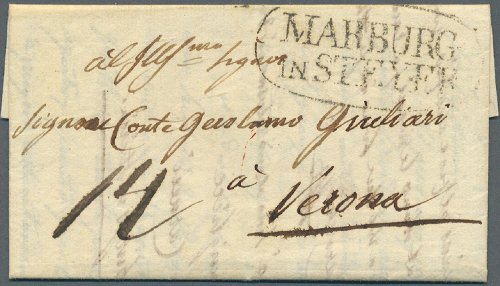 MARBURG
IN STEYER
all Ill.mo Signor
Signore Conte Gerolamo Giuliari
à
14
Verona